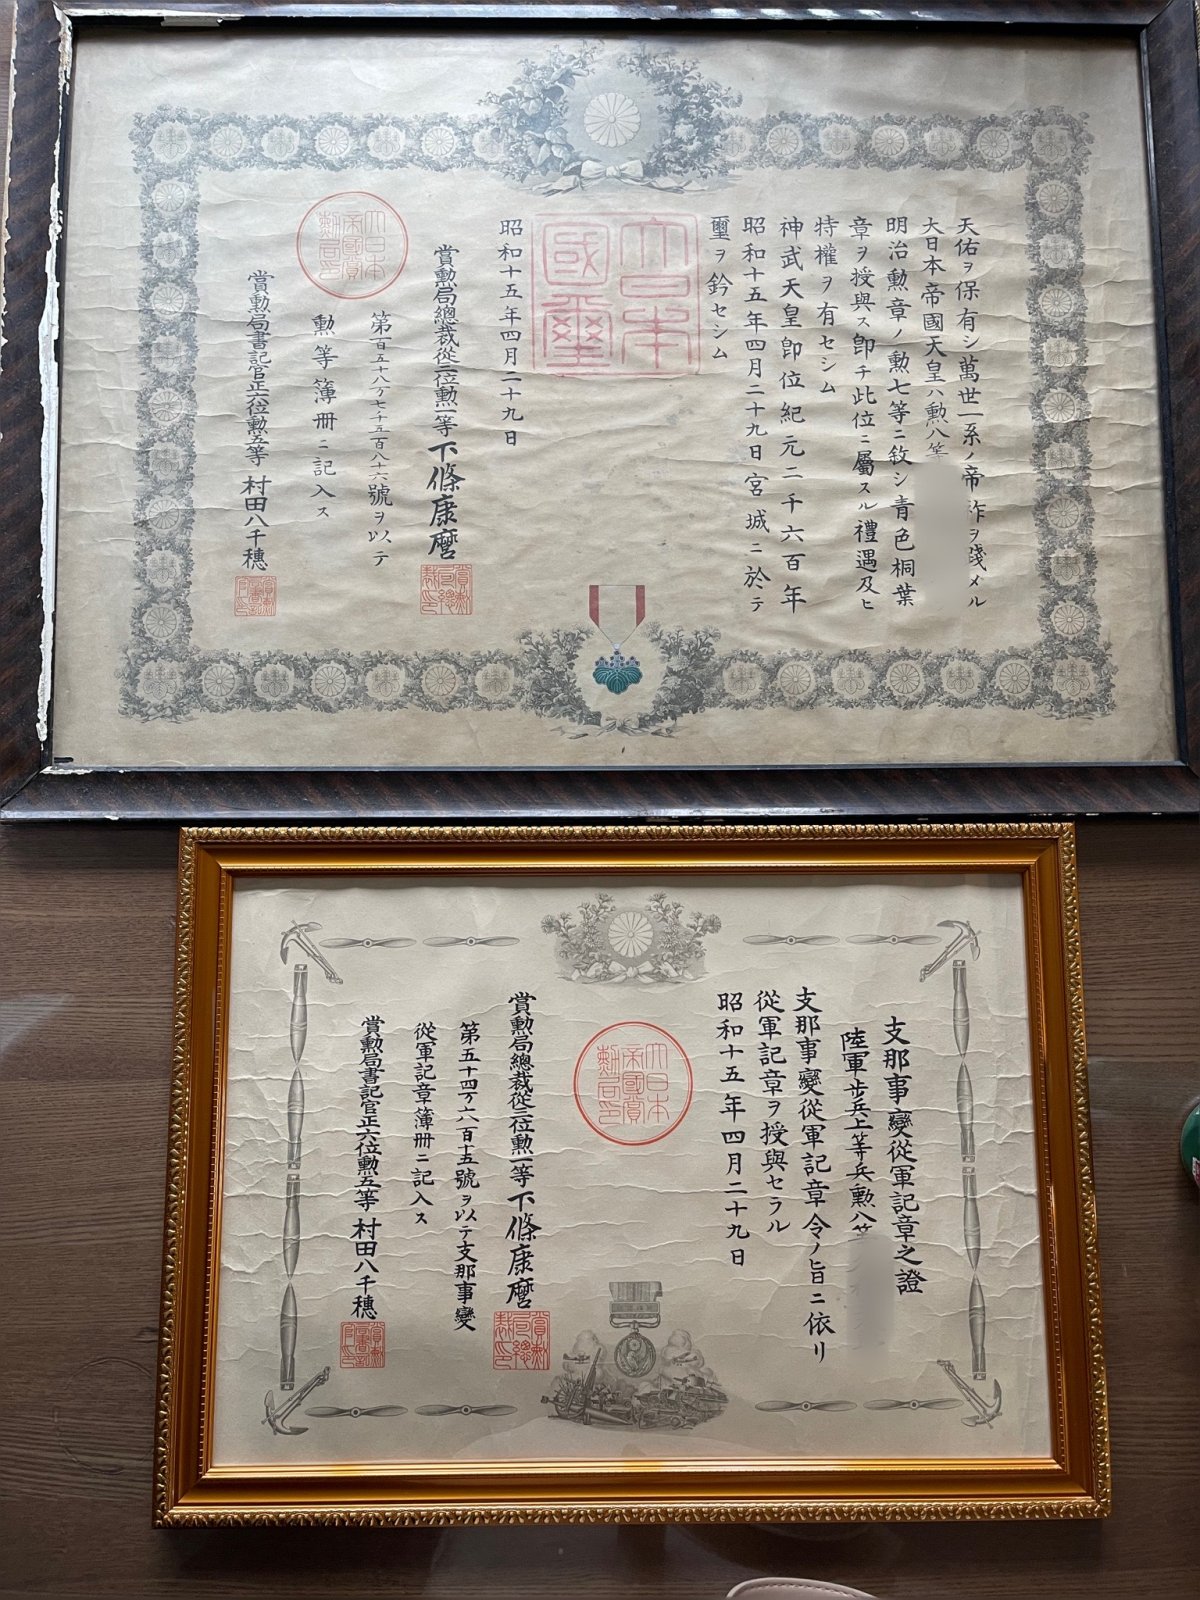 天佑ヲ保有シ萬世一系ノ帝祚ヲ踐メル
大日本帝國天皇ハ勲八等
明治勲章ノ勲七等ニ敘シ青色桐葉
章ヲ授與ス卽チ此位ニ屬スル禮遇及ヒ
特權ヲ有セシム
神武天皇卽位紀元二千六百年
昭和十五年四月二十九日宮城ニ於テ
璽ヲ鈐セシム
大日本國璽
昭和十五年四月二十九日
賞勲局總裁從三位勲一等下條康麿
第百五十八万七千五百八十六號ヲ以テ
勲等簿册ニ記入ス
大日本帝國賞勲局印
賞勲局書記官正六位勲五等村田八千穗
支那事變從軍記章之證
陸軍步兵上等兵勲八等
支那事變從軍記章令ノ旨ニ依リ
從軍記章ヲ授與セラル
昭和十五年四月二十九日
大日本帝國賞勲局印
賞勲局總裁從三位勲一等下條康麿
第五十四万六百十五號ヲ以テ支那事變
從軍記章簿册ニ記入ス
賞勲局書記官正六位勲五等村田八千穗